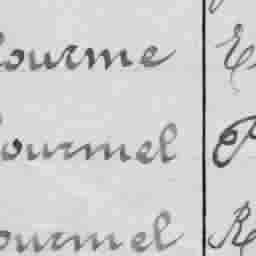 ourme E
ourmel P
ourmel R